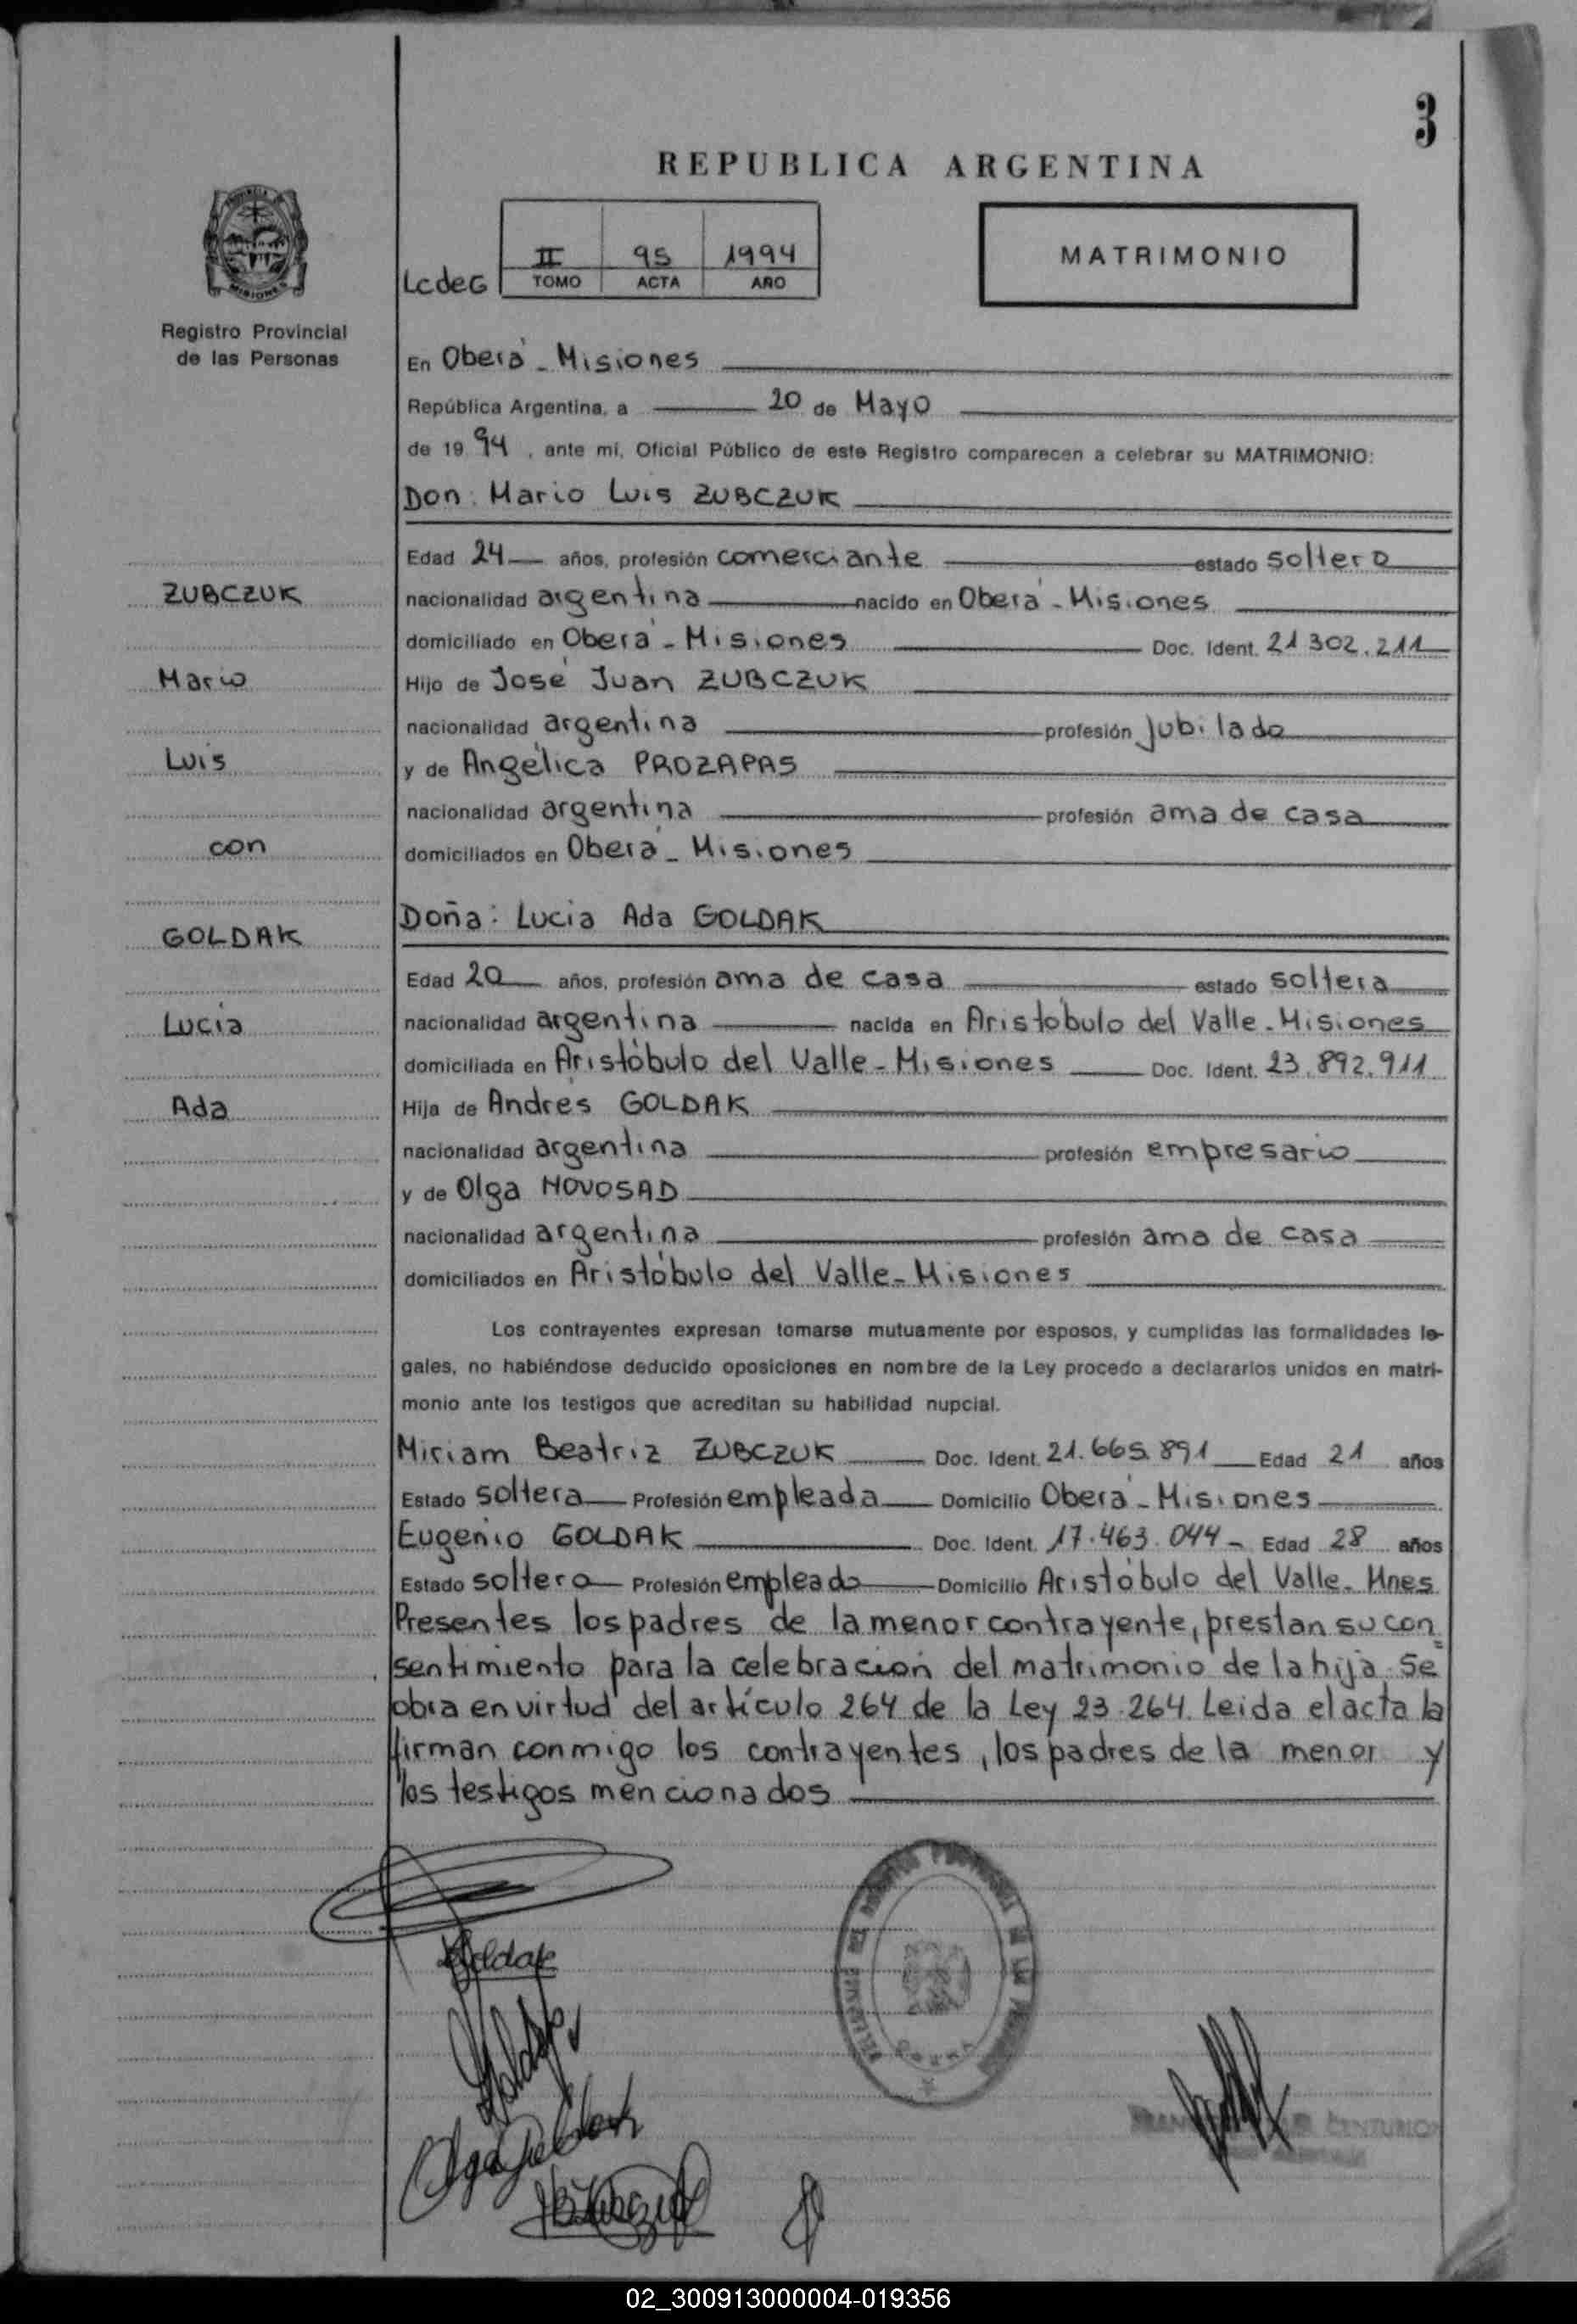 3
REPUBLICA ARGENTINA
II 95 1994
LcdeG TOMO ACTA AÑO
MATRIMONIO
PROVINCIA
MISIONES
Registro Provincial
de las Personas
En Oberá - Misiones
República Argentina, a 20 de Mayo
de 1994, ante mi, Oficial Público de este Registro comparecen a celebrar su MATRIMONIO:
Don: Mario Luis ZUBCZUK
Edad 24 años, profesión comerciante estado soltero
ZUBCZUK
nacionalidad argentina nacido en Oberá - Misiones
domiciliado en Oberá - Misiones Doc. Ident. 21.302.211
Mario
Hijo de José Juan ZUBCZUK
nacionalidad argentina profesión jubilado
Luis
y de Angélica PROZAPAS
nacionalidad argentina profesión ama de casa
con
domiciliados en Oberá - Misiones
Doña: Lucia Ada GOLDAK
GOLDAK
Edad 20 años, profesión ama de casa estado soltera
Lucia
nacionalidad argentina nacida en Aristóbulo del Valle - Misiones
domiciliada en Aristóbulo del Valle - Misiones Doc. Ident. 23.892.911
Ada
Hija de Andrés GOLDAK
nacionalidad argentina profesión empresario
y de Olga NOVOSAD
nacionalidad argentina profesión ama de casa
domiciliados en Aristóbulo del Valle - Misiones
Los contrayentes expresan tomarse mutuamente por esposos, y cumplidas las formalidades le-
gales, no habiéndose deducido oposiciones en nombre de la Ley procedo a declararlos unidos en matri-
monio ante los testigos que acreditan su habilidad nupcial.
Miriam Beatriz ZUBCZUK Doc. Ident. 21.665.891 Edad 21 años
Estado soltera Profesión empleada Domicilio Oberá - Misiones
Eugenio GOLDAK Doc. Ident. 17.463.044 - Edad 28 años
Estado soltero Profesión empleado Domicilio Aristóbulo del Valle - Mnes
Presentes los padres de la menor contrayente, prestan su con=
sentimiento para la celebración del matrimonio de la hija. Se
obra en virtud del artículo 264 de la Ley 23.264. Leida el acta la
firman conmigo los contrayentes, los padres de la menor y
los testigos mencionados
Goldak
Olga Goldak
CENTURION
02_300913000004-019356